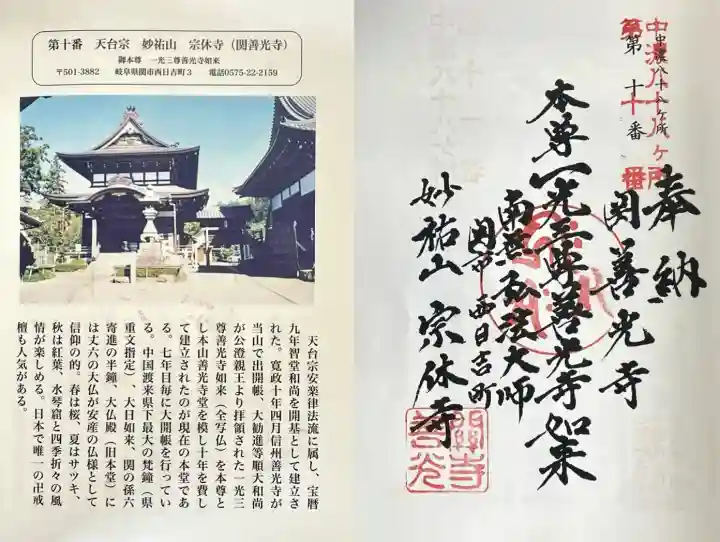 第十番　天台宗　妙祐山　宗休寺（関善光寺）
御本尊　一光三尊善光寺如来
〒501-3882　岐阜県関市西日吉町３　電話0575-22-2159
天台宗安楽律法流に属し、宝暦
九年智堂和尚を開基として建立さ
れた。寛政十年四月信州善光寺が
当山で出開帳、大勧進等順大和尚
が公澄親王より拝領された一光三
尊善光寺如来（全写仏）を本尊と
し本山善光寺堂を模し十年を費し
て建立されたのが現在の本堂であ
る。七年目毎に大開帳を行ってい
る。中国渡来県下最大の梵鐘（県
重文指定）、大日如来、関の孫六
寄進の半鐘、大仏殿（旧本堂）に
は丈六の大仏が安産の仏様として
信仰の的。春は桜、夏はサツキ、
秋は紅葉、水琴窟と四季折々の風
情が楽しめる。日本で唯一の卍戒
檀も人気がある。
中濃八十八ヶ所
第十番
第十番
奉納
関善光寺
本尊一光三尊善光寺如来
南無弘法大師
関市西日吉町
妙祐山宗休寺
関善光寺